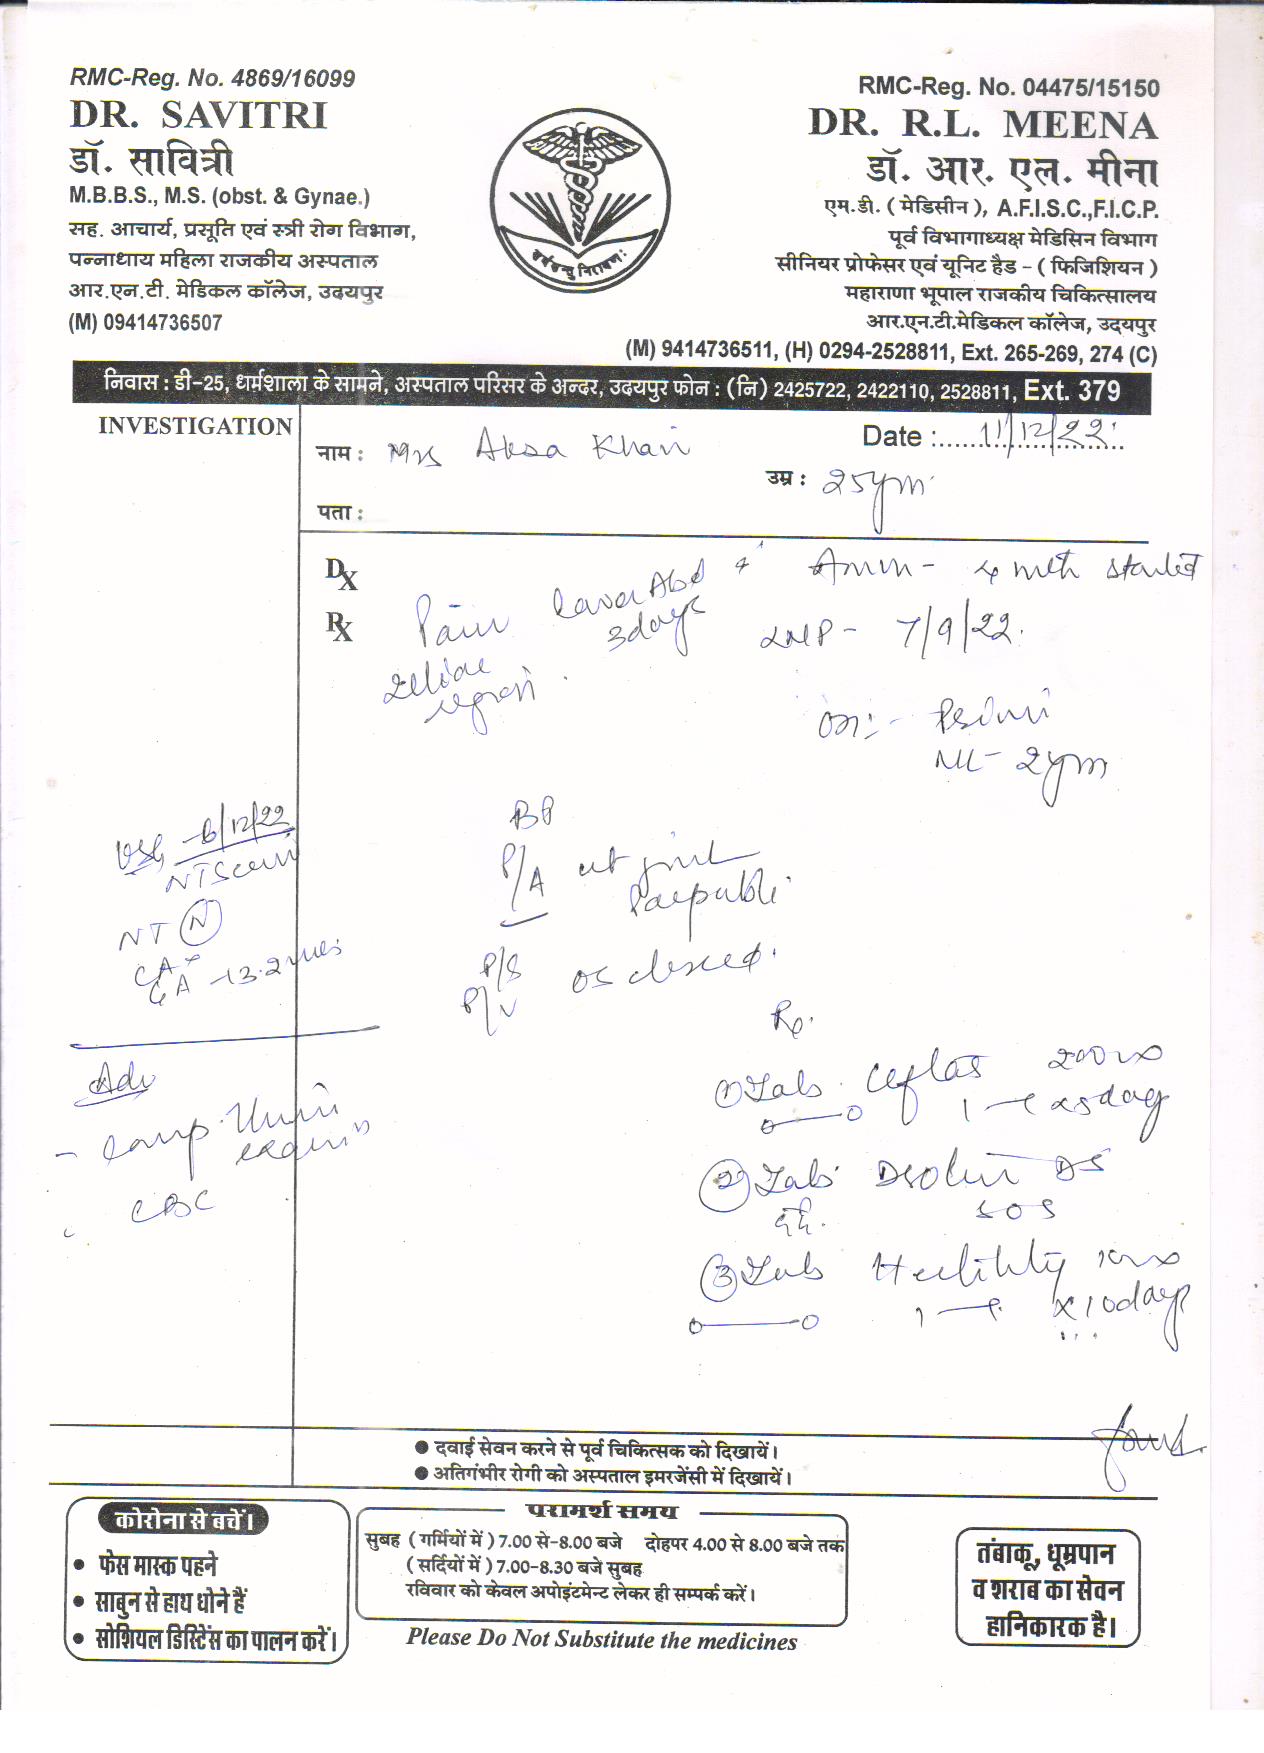 RMC-Reg. No. 4869/16099
DR. SAVITRI
डॉ. सावित्री
M.B.B.S., M.S. (obst. & Gynae.)
सह. आचार्य, प्रसूति एवं स्त्री रोग विभाग,
पन्नाधाय महिला राजकीय अस्पताल
आर.एन.टी. मेडिकल कॉलेज, उदयपुर
(M) 09414736507
RMC-Reg. No. 04475/15150
DR. R.L. MEENA
डॉ. आर. एल. मीना
एम.डी. ( मेडिसीन ), A.F.I.S.C.,F.I.C.P.
पूर्व विभागाध्यक्ष मेडिसिन विभाग
सीनियर प्रोफेसर एवं यूनिट हैड - ( फिजिशियन )
महाराणा भूपाल राजकीय चिकित्सालय
आर.एन.टी.मेडिकल कॉलेज, उदयपुर
(M) 9414736511, (H) 0294-2528811, Ext. 265-269, 274 (C)
निवास : डी-25, धर्मशाला के सामने, अस्पताल परिसर के अन्दर, उदयपुर फोन : (नि) 2425722, 2422110, 2528811, Ext. 379
INVESTIGATION
नाम : Mrs Aksa Khan
Date : 11/12/22
उम्र : 25
पता :
DX
RX
Pain lower Abd
3 days
4 mth started
LMP - 7/9/22.
ML - 2
BP
P/A
P/S
P/V OS closed.
USG - 6/12/22
NT Scan
NT (N)
GA - 13.2
Adv
- Comp. Urine
- CBC
Rp.
① Tab. 200
1 x 5 days
② Tab. DS
SOS
③ Tab
1 x 10 days
● दवाई सेवन करने से पूर्व चिकित्सक को दिखायें।
● अतिगंभीर रोगी को अस्पताल इमरजेंसी में दिखायें।
कोरोना से बचें।
• फेस मास्क पहने
• साबुन से हाथ धोने हैं
• सोशियल डिस्टिेंस का पालन करें।
परामर्श समय
सुबह ( गर्मियों में ) 7.00 से-8.00 बजे दोहपर 4.00 से 8.00 बजे तक
( सर्दियों में ) 7.00-8.30 बजे सुबह
रविवार को केवल अपोइंटमेन्ट लेकर ही सम्पर्क करें।
Please Do Not Substitute the medicines
तंबाकू, धूम्रपान
व शराब का सेवन
हानिकारक है।